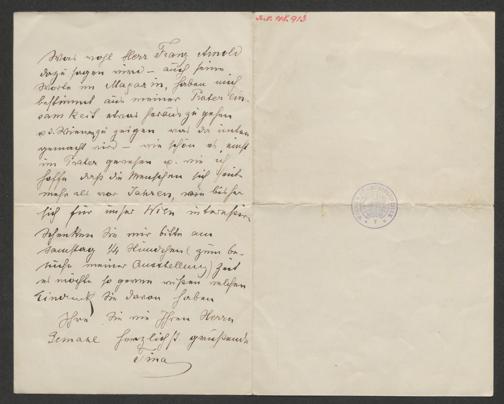 Was wohl Herr Franz Arnold
dazu sagen wird – auch seine
Worte im Magazin, haben mich
bestimmt aus meiner Prater Ein-
samkeit etwas herauszugehen
zu zeigen was da unten
gemacht wird – wie schön es einst
im Prater gewesen u. wie ich
hoffe daß die Menschen sich
mehr als vor Jahren, wie bisher
sich für unser Wien interessir
Schenken Sie mir bitte am
Samstag 1/4 Stündchen (zum Be-
suche meiner Ausstellung) Zeit
es möchte so gerne wissen welchen
Eindruck Sie davon haben
Ihre Sie wie Ihren Herrn
Gemahl herzlichst grüßende
Tina